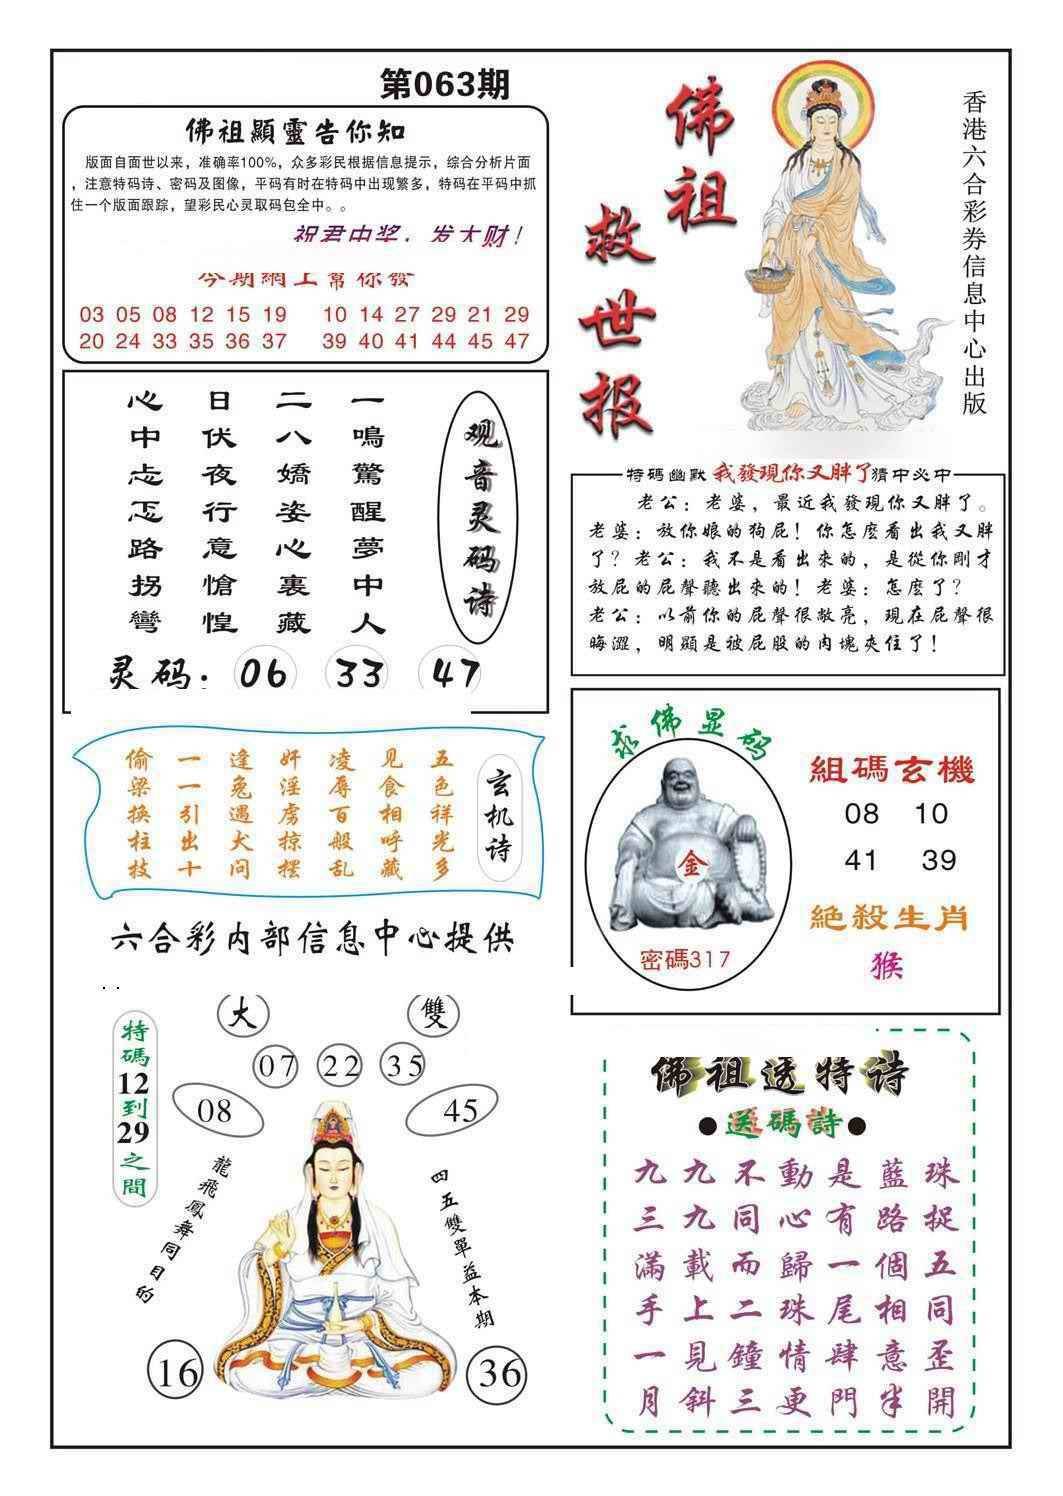 第063期
佛祖顯靈告你知
版面自面世以来，准确率100%，众多彩民根据信息提示，综合分析片面
，注意特码诗、密码及图像，平码有时在特码中出现繁多，特码在平码中抓
住一个版面跟踪，望彩民心灵取码包全中。。
祝君中奖，发大财！
今期網上幫你發
03 05 08 12 15 19 10 14 27 29 21 29
20 24 33 35 36 37 39 40 41 44 45 47
佛祖
救世报
香港六合彩券信息中心出版
观音灵码诗
一鳴驚醒夢中人
二八嬌姿心裏藏
日伏夜行意愴惶
心中忐忑路拐彎
灵码：06 33 47
特碼幽默 我發現你又胖了 猜中必中
老公：老婆，最近我發現你又胖了。
老婆：放你娘的狗屁！你怎麽看出我又胖
了？老公：我不是看出來的，是從你剛才
放屁的屁聲聽出來的！老婆：怎麽了？
老公：以前你的屁聲很敞亮，現在屁聲很
晦澀，明顯是被屁股的肉塊夾住了！
玄机诗
五色祥光多
见食相呼藏
凌辱百般乱
奸淫虏掠摆
逢兔遇犬问
一一引出十
偷梁换柱技
六合彩内部信息中心提供
求佛显码
金
密碼317
組碼玄機
08 10
41 39
絕殺生肖
猴
大 雙
07 22 35
08 45
特碼12到29之間
龍飛鳳舞同目的
四五雙單益本期
16 36
佛祖透特诗
●送碼詩●
九九不動是藍珠
三九同心有路捉
滿載而歸一個五
手上二珠尾相同
一見鐘情肆意歪
月斜三更門半開